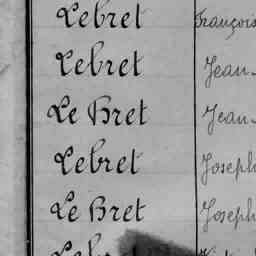 Lebret François
Lebret Jean
Le Bret Jean
Lebret Joseph
Le Bret Joseph